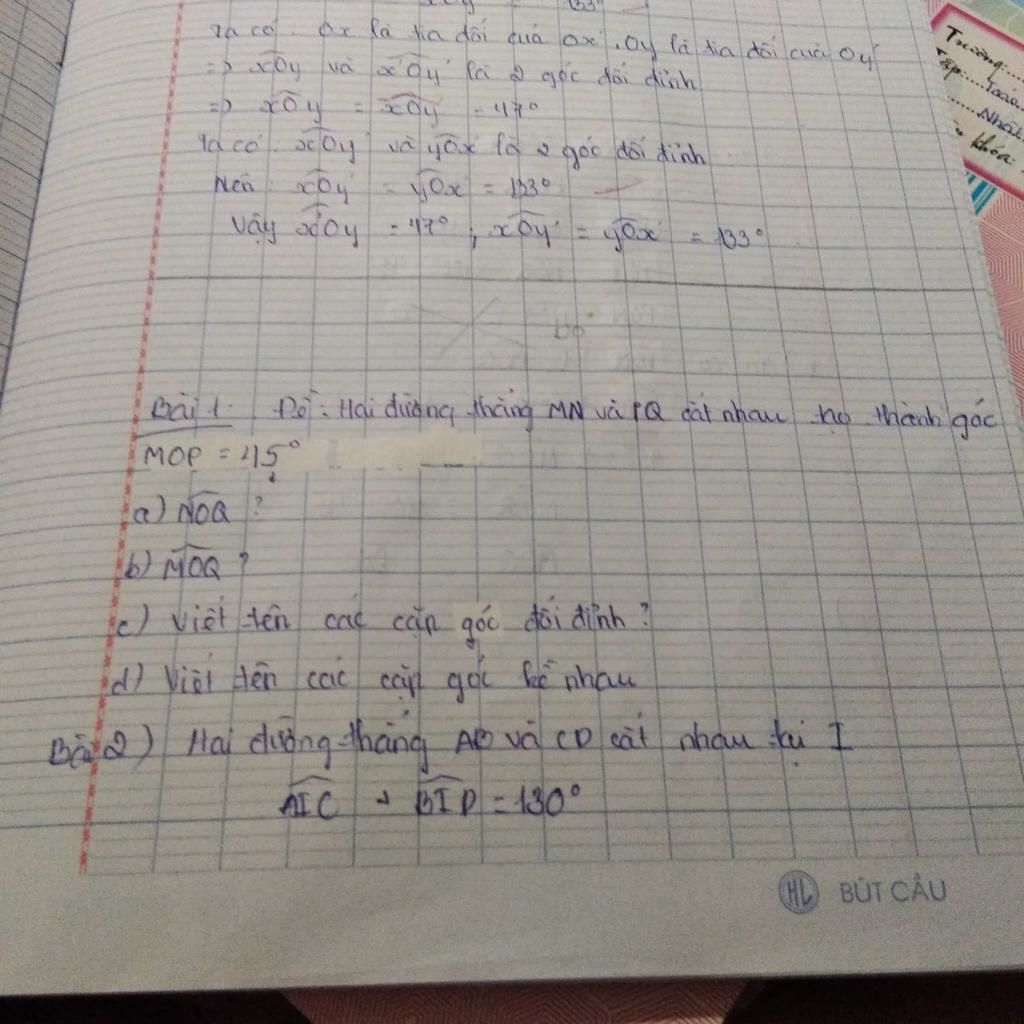 133°
Ta có: Ox là tia đối của Ox', Oy là tia đối của Oy'
=> xOy và x'Oy' là 2 góc đối đỉnh
=> xOy = x'Oy' = 47°
Ta có xOy' và yOx' là 2 góc đối đỉnh
Nên: xOy' = yOx' = 133°
Vậy x'Oy' = 47°, xOy' = yOx' = 133°
Bài 1. Đề: Hai đường thẳng MN và PQ cắt nhau tạo thành góc
MOP = 45°
a) NOQ ?
b) MOQ ?
c) Viết tên các cặp góc đối đỉnh?
d) Viết tên các cặp góc kề nhau
Bài 2) Hai đường thẳng AB và CD cắt nhau tại I
AIC + BID = 130°
HL BÚT CẦU
Trường...
Lớp....Toán
Nhãn
khóa: